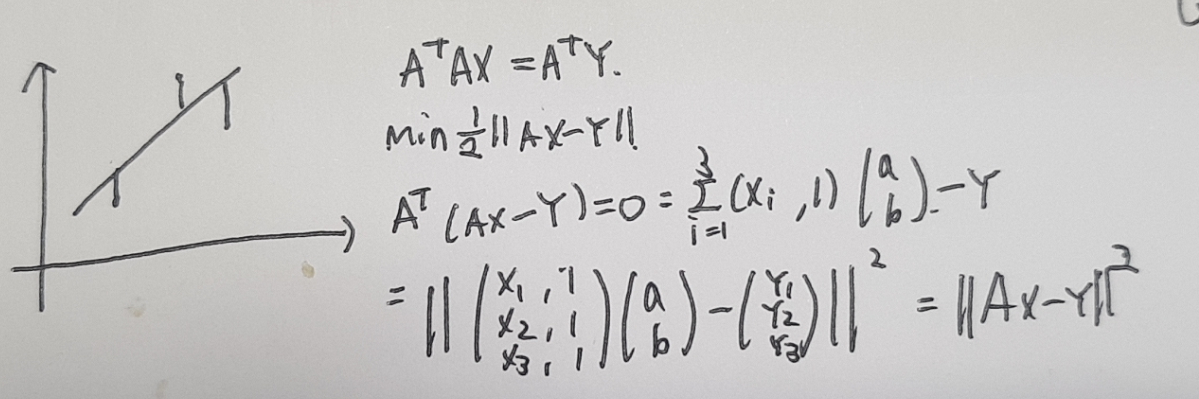 AᵀAX = AᵀY.
min ½||AX-Y||
Aᵀ(AX-Y)=0 = Σ_{i=1}^{3} (xi, 1) (a b).-Y
= ||(x1, 1 x2, 1 x3, 1)(a b)-(Y1 Y2 Y3)||² = ||Ax-Y||²